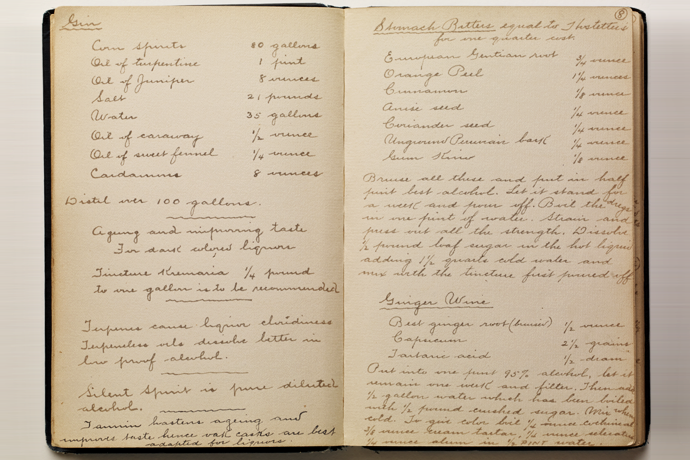 Gin
Corn spirits 80 gallons
Oil of turpentine 1 pint
Oil of Juniper 8 ounces
Salt 21 pounds
Water 35 gallons
Oil of caraway 1/2 ounce
Oil of sweet fennel 1/4 ounce
Cardamums 8 ounces
Distel over 100 gallons.
Ageing and improving taste
For dark colored liquors
Tincture Rhemaria 1/4 pound
to one gallon is to be recommended
Terpenes cause liquor cloudiness
Terpeneless oils dissolve better in
low proof alcohol.
Silent Spirit is pure diluted
alcohol.
Tannin hastens ageing and
improves taste hence oak casks are best
adapted for liquors.
8
Stomach Bitters equal to Hostetters
for one quarter cost
European Gentian root 3/4 ounce
Orange Peel 1 1/4 ounces
Cinnamon 1/8 ounce
Anise seed 1/4 ounce
Coriander seed 1/4 ounce
Unground Peruvian bark 1/4 ounce
Gum Kino 1/8 ounce
Bruise all these and put in half
pint best alcohol. Let it stand for
a week and pour off. Boil the dregs
in one pint of water. Strain and
press out all the strength. Dissolve
1/2 pound loaf sugar in the hot liquid
adding 1 1/2 quarts cold water and
mix with the tincture first poured off
Ginger Wine
Best ginger root (bruised) 1/2 ounce
Capsicum 2 1/2 grains
Tartaric acid 1/2 dram
Put into one pint 95% alcohol, let it
remain one week and filter. Then add
1/2 gallon water which has been boiled
with 1/2 pound crushed sugar. Mix when
cold. To give color boil 1/2 ounce cochineal
3/4 ounce cream tartar, 1/4 ounce saleratus
1/4 ounce alum in 1/2 pint water